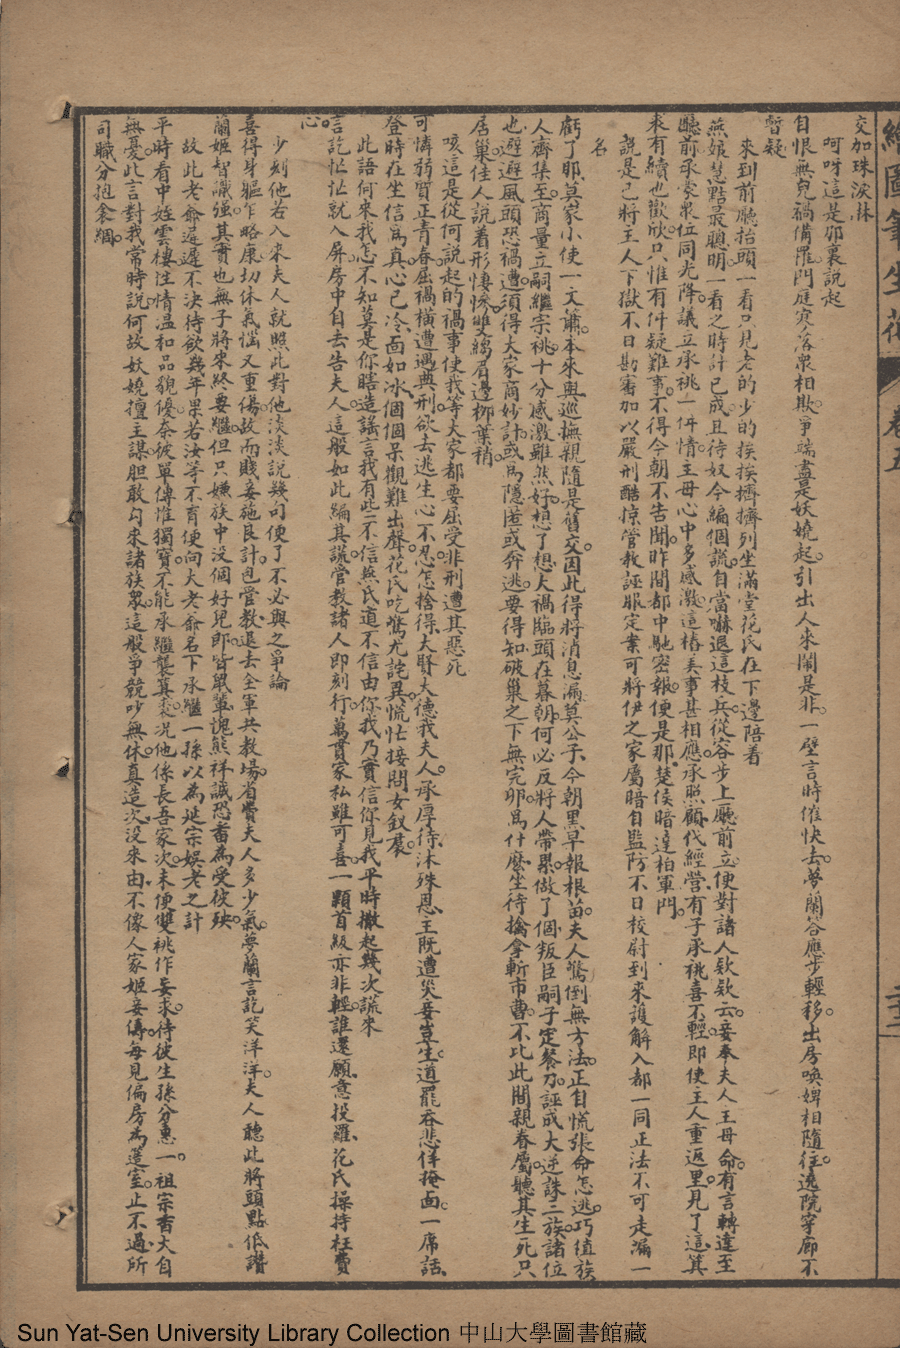 繪圖筆生花 卷五 二十二
交加珠淚淋
呵呀這是卯裏說起
自恨無兒禍備罹門庭寒落衆相欺爭端盡是妖嬈起引出人來鬧是非一壁言時催快去夢蘭答應步輕移出房喚婢相隨往遶院穿廊不
暫疑
來到前廳抬頭一看只見老的少的挨挨擠擠列坐滿堂花氏在下邊陪着
燕娘慧黠最聰明一看之時計已成且待奴今編個謊自當嚇退這枝兵從容步上廳前立便對諸人欵欵云妾奉夫人王母命有言轉達至
廳前承蒙衆位同光降議立承祧一件情王母心中多感激這樁美事甚相應承照顧代經營有子承祧喜不輕即使主人重返里見了這箕
裘有續也歡欣只惟有件疑難事不得今朝不告聞昨聞都中馳密報便是那楚侯暗達柏軍門
說是已將王人下獄不日勘審加以嚴刑酷掠管教誣服定案可將伊之家屬暗自監防不日校尉到來護解入都一同正法不可走漏一
名
虧了那莫家小使一文蕭本來與巡撫親隨是舊交因此得將消息漏莫公子今朝黑早報根苗夫人驚倒無方法正自慌張命怎逃巧值族
人齊集至商量立嗣繼宗祧十分感激雖然好想了想大禍臨頭在暮朝何必反將人帶累做了個叛臣嗣子定餐刀誣成大逆誅三族諸位
也避避風頭恐禍遭須得大家商妙計或爲隱匿或奔逃要得知破巢之下無完卵爲什麼坐待擒拿斬市曹不比此間親眷屬聽其生死只
居巢佳人說着形悽慘雙縐眉邊柳葉梢
咳這是從何說起的禍事使我等大家都要屈受非刑遭其惡死
可憐弱質正青春屈禍橫遭遇典刑欲去逃生心不忍怎捨得大賢大德我夫人承厚待沐殊恩王既遭災妾豈生道罷吞悲佯掩面一席話
登時在坐信爲真心已冷面如冰個個呆觀難出聲花氏吃驚尤詫異慌忙接問女釵裙
此語何來我怎不知莫是你瞎造謠言我有些二不信燕氏道不信由你我乃實信你見我平時撒起幾次謊來
言訖忙忙就入屏房中自去告夫人這般如此編其謊管教諸人即刻行萬貫家私雖可喜一顆首級亦非輕誰還願意投羅花氏操持枉費
心
少刻他若入來夫人就照此對他淡淡說幾句便了不必與之爭論
喜得身軀乍略康切休氣惱又重傷故而賤妾施良計包管教退去全軍共教場省費夫人多少氣夢蘭言訖笑洋洋夫人聽此將頭點低讚
蘭姬智識強其實也無子將來終要繼但只嫌族中沒個好兒郎皆鼠輩愧熊祥誠恐畜為受彼殃
故此老爺遲遲不決待欲幾年果若汝等不育便向大老爺名下承繼一孫以為延宗娛老之計
平時看中姪雲樓性情溫和品貌優奈彼單傳惟獨寶不能承繼襲箕裘况他係長吾家次未便雙祧作妄求待彼生孫分惠一祖宗香火自
無憂此言對我常時說何故妖嬈擅主謀胆敢勾來諸族衆這般爭競吵無休真造次没來由不像人家姬妾儔每見偏房為簉室止不過所
司職分抱衾裯
Sun Yat-Sen University Library Collection 中山大學圖書館藏